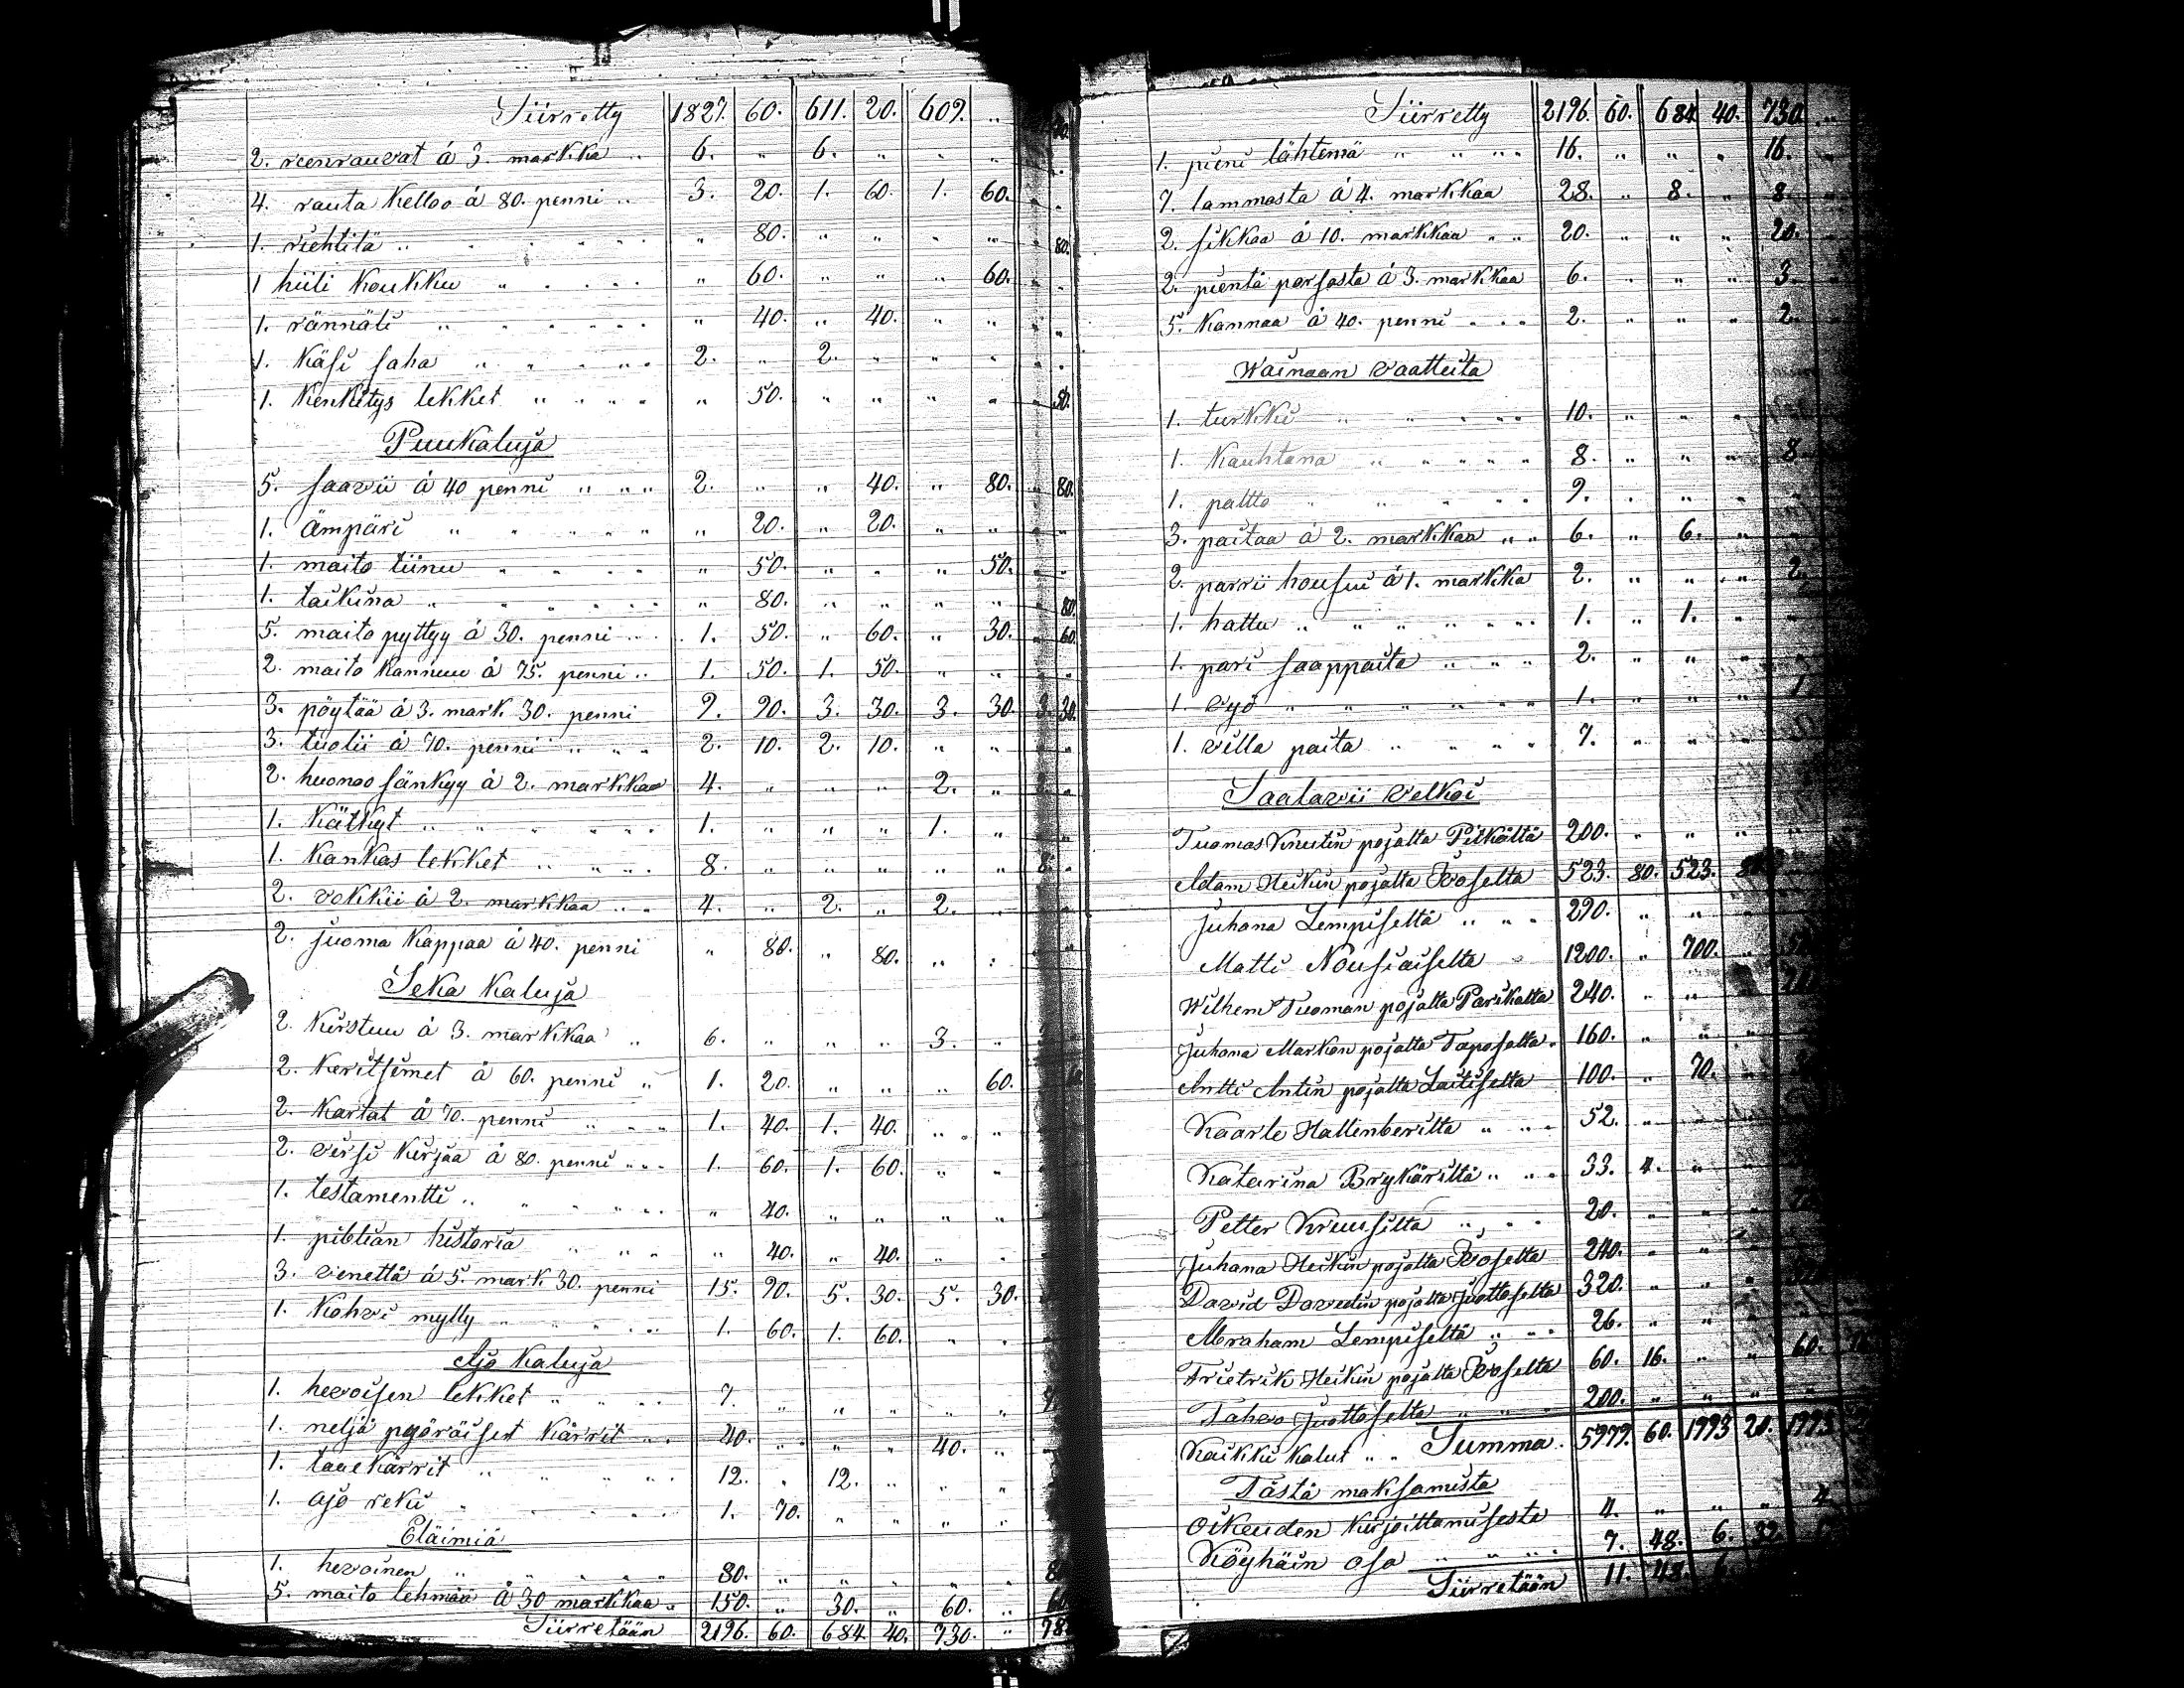 Siirretty 1827. 60. 611. 20. 609. "
2. reenrauvat á 3. markka " 6. " 6. " " "
4. rauta Kelloo á 80. penni " 3. 20. 1. 60. 1. 60. " "
1. riehtilä " " 80. " " " " " 80.
1 hiili Koukku " " 60. " " " 60. " "
1. rännäli " " 40. " 40. " " " "
1. Käsi saha " 2. " 2. " " " " "
1. Kenkitys lekket " " 50. " " " " " 50.
Puukaluja
5. saavii á 40 penni " 2. " " 40. " 80. " 80.
1. ämpäri " " 20. " 20. " " " "
1. maito tiinu " " 50. " " " 50. " "
1. taikina " " 80. " " " " " 80.
5. maito pyttyy á 30. penni " 1. 50. " 60. " 30. " 60.
2. maito Kannuu á 75. penni " 1. 50. 1. 50. " " " "
3. pöytää á 3. mark. 30. penni 9. 90. 3. 30. 3. 30. 3. 30.
3. tuolii á 70. penni " 2. 10. 2. 10. " " " "
2. huonoo sänkyy á 2. markkaa 4. " " " 2. " 2. "
1. Kätkyt " 1. " " " 1. " " "
1. Kankas lekket " 8. " " " " " 8. "
2. vokkii á 2. markkaa " 4. " 2. " 2. " "
2. juoma Kappaa á 40. penni " 80. " 80. " "
Seka Kaluja
2. Kirstuu á 3. markkaa " 6. " " " 3. "
2. Keritsimet á 60. penni " 1. 20. " " " 60.
2. Kartat á 70. penni " 1. 40. 1. 40. " "
2. virsi Kirjaa á 80. penni " 1. 60. 1. 60. " "
1. testamentti " " 40. " " " "
1. piblian historia " " 40. " 40. " "
3. venettä á 5. mark. 30. penni 15. 90. 5. 30. 5. 30.
1. Kahvi mylly " 1. 60. 1. 60. " "
Ajo Kaluja
1. hevoisen lekket " 7. " " " " "
1. neljä pyöräiset Kärrit " 40. " " " 40. "
1. takkärrit " 12. " 12. " " "
1. ajo reki " 1. 70. " " " "
Eläimiä
1. hevoinen " 80. " " " " "
5. maito lehmää á 30 markkaa " 150. " 30. " 60. "
Siirretään 2196. 60. 684 40. 730. "
Siirretty 2196. 60. 684 40. 730. "
1. pieni lähtemä " 16. " " " 16.
7. lammasta á 4. markkaa 28. " 8. " 8.
2. sikkaa á 10. markkaa " 20. " " " 20.
2. pientä porsasta á 3. markkaa 6. " " " 3.
5. Kannaa á 40. penni " 2. " " " 2.
Wainaan vaatteita
1. turkki " 10. " " "
1. Kauhtana " 8. " " " 8
1. paltto " 9. " " " "
3. paitaa á 2. markkaa " 6. " 6. " "
2. parrii housui á 1. markka 2. " " " 2.
1. hattu " 1. " 1. " "
1. pari saappaita " 2. " " " "
1. vyö " 1. " " " 1.
1. villa paita " 7. " " "
Saatavii velkoi
Tuomas Knuutin pojalta Pitkältä 200. " " " "
Adam Heikin pojalta Ikoselta 523. 80. 523. 80
Juhana Lempiseltä " 290. " " "
Matti Nousiaiselta " 1200. " 700. "
Wilhem Tuoman pojalta Parikalta 240. " " "
Juhana Markon pojalta Taposelta " 160. " " "
Antti Antin pojalta Laitiselta 100. " 70. "
Kaarle Hallenberilta " 52. " " "
Katarina Brykäriltä " 33. 4. " "
Petter Kruusilta " 20. " " "
Juhana Heikin pojalta Ikoselta 240. " " "
David Davedin pojalta Juottoselta 320. " " "
Abraham Lempiseltä " 26. " " "
Frietrik Heikin pojalta Ikoselta 60. 16. " " 60.
Tahvo Juottoselta " 200. " " " "
Kaikki kalut " Summa. 5979. 60. 1993 20. 1993
Tästä maksamista
Oikeuden Kirjoittamisesta 4. " " " 4.
Köyhäin osa " 7. 48. 6. 32.
Siirretään 11. 48. 6.